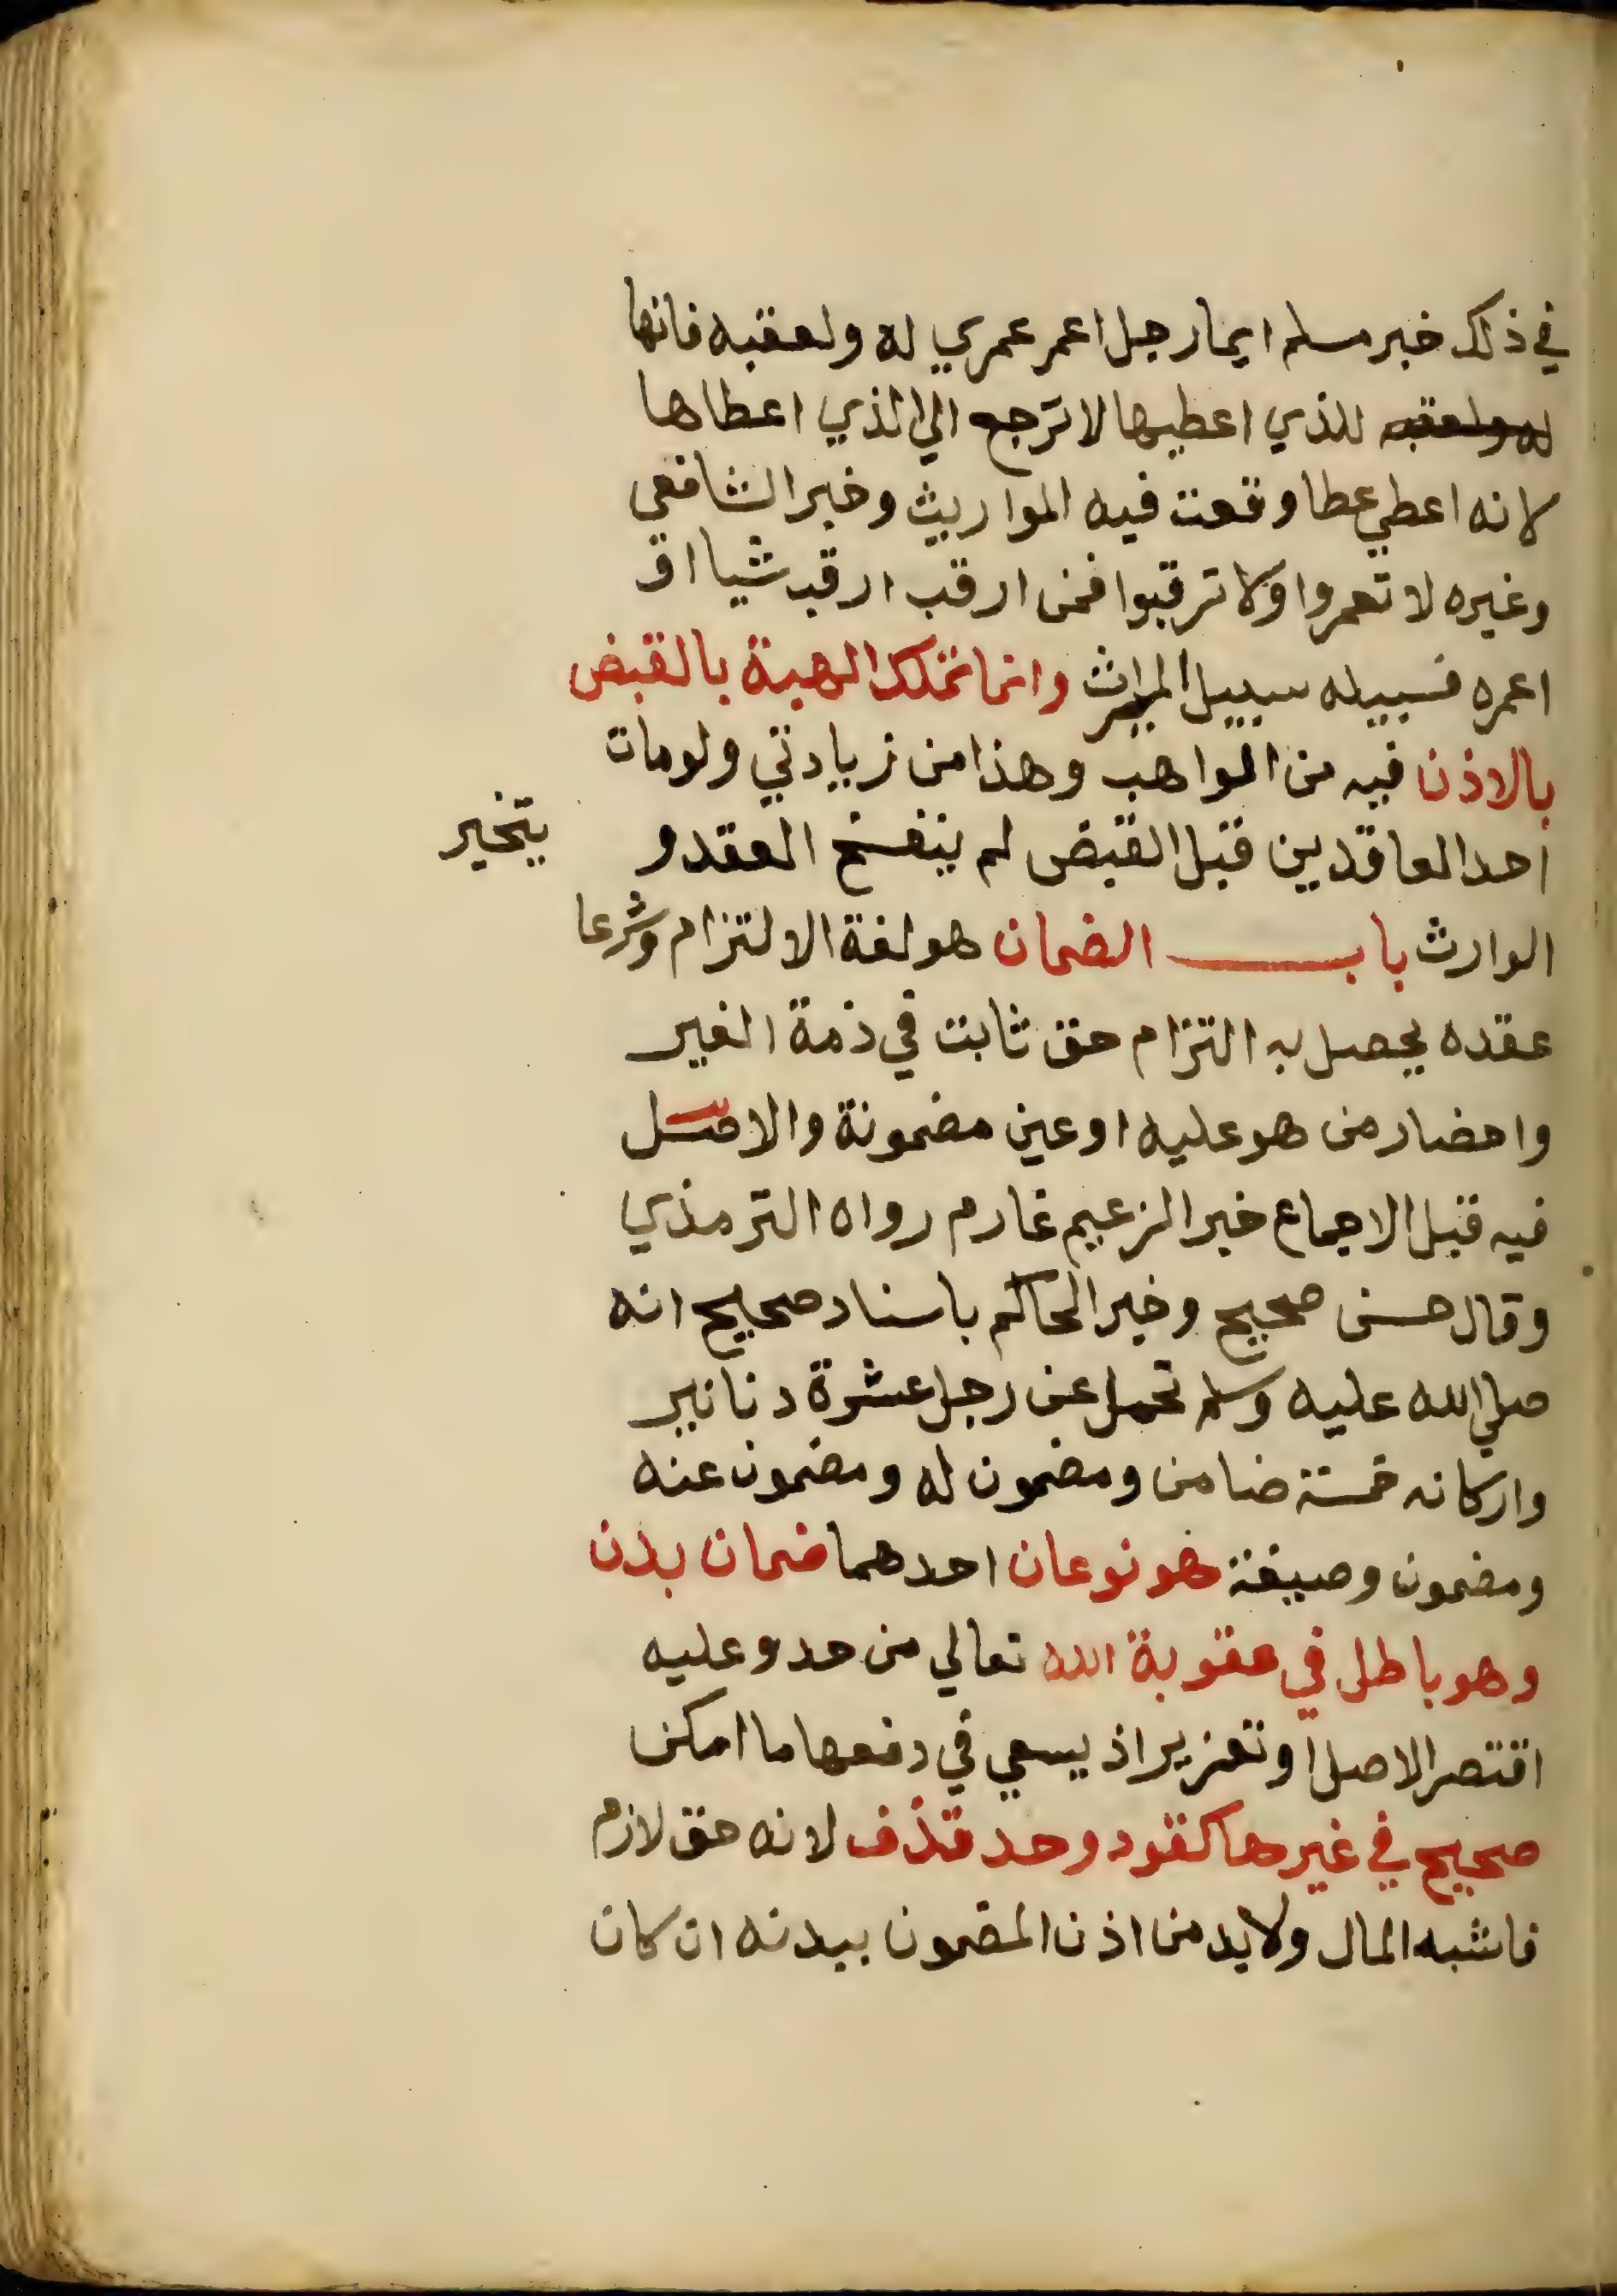 في ذلك خبر مسلم ايما رجل اعمر عمري له ولعقبه فانها
له ولعقبه للذي اعطيها لا ترجع الي الذي اعطاها
لانه اعطي عطا وقعت فيه المواريث وخبر الشافعي
وغيره لا تعمروا ولا ترقبوا فمن ارقب ارقب شيا او
اعمره فسبيله سبيل الميراث وانما تملك الهبة بالقبض
بالاذن فيه من الواهب وهذا من زيادتي ولو مات
احد العاقدين قبل القبض لم ينفسخ العقد و يتخير
الوارث باب الضمان هو لغة الالتزام وشرعا
عقده يحصل به التزام حق ثابت في ذمة الغير
واحضار من هو عليه او عين مضمونة والاصل
فيه قبل الاجماع خبر الزعيم غارم رواه الترمذي
وقال حسن صحيح وخبر الحاكم باسناد صحيح انه
صلي الله عليه وسلم تحمل عن رجل عشرة دنانير
واركانه خمسة ضامن ومضمون له ومضمون عنه
ومضمون وصيغة هو نوعان احدهما ضمان بدن
وهو باطل في عقوبة الله تعالي من حد وعليه
اقتصر الاصل او تعزير اذ يسعي في دفعها ما امكن
صحيح في غيرها كقود وحد قذف لانه حق لازم
فاشبه المال ولا بد من اذن المضمون ببدنه ان كان